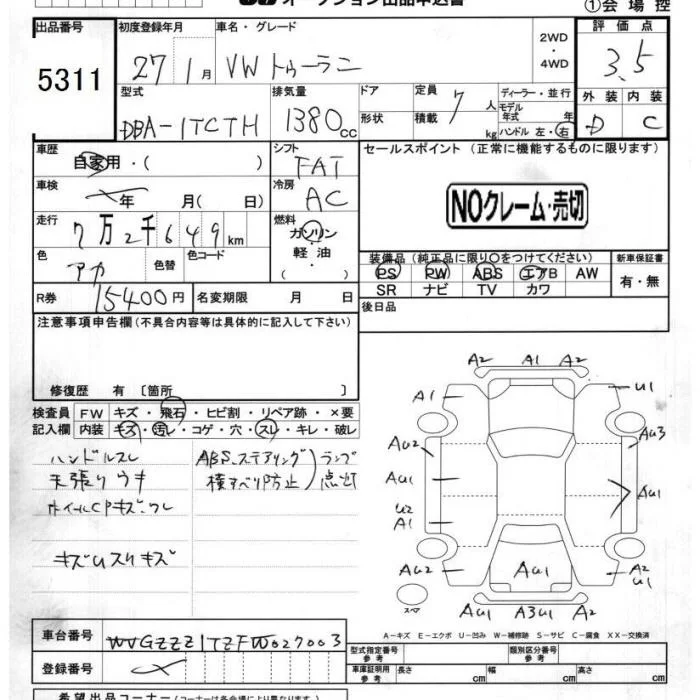 オークション出品申込書
①会場控
出品番号
5311
初度登録年月
27 1月
車名・グレード
VW トゥーラン
2WD
・
4WD
評価点
3.5
外装 内装
D C
型式
DBA-1TCTH
排気量
1380cc
ドア
形状
定員 7人
積載 kg
ディーラー・並行
モデル年式 年
ハンドル 左・右
車歴
自家用・( )
シフト
FAT
セールスポイント(正常に機能するものに限ります)
NOクレーム・売切
車検
年 月( 日)
冷房
AC
走行
7万2千649km
燃料
ガソリン
軽油
・( )
色
アカ
色替
色コード
装備品(純正品に限り○をつけてください)
PS PW ABS エアB AW
SR ナビ TV カワ
新車保証書
有・無
R券 15400円
名変期限 月 日
後日品
注意事項申告欄(不具合内容等は具体的に記入して下さい)
修復歴 有〔箇所 〕
検査員
記入欄
FW キズ・飛石・ヒビ割・リペア跡・×要
内装 キズ・汚レ・コゲ・穴・スレ・キレ・破レ
ハンドルスレ
天張りウキ
ホイールCPキズ・ワレ
ABS、ステアリング
横すべり防止
ランプ
点灯
A2 A1 A2
A1
U1
AU2
AU3
AU1
AU1
U2
A1
AU2
AU1
A2
U1
スペア
AU1 A3U1 A2
A-キズ E-エクボ U-凹み W-補修跡 S-サビ C-腐食 XX-交換済
車台番号
WVGZZZ1TZFW027003
登録番号
型式指定番号
参考
類別区分番号
参考
車庫証明用
参考
長さ cm
幅 cm
高さ cm
希望出品コーナー(コーナーは各会場により異なります)